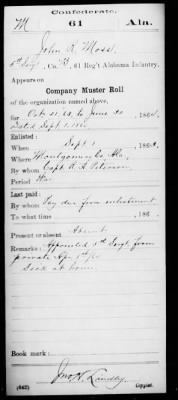 Confederate.
M 61 Ala.
John R. Moss
5th Sergt, Co. B, 61 Reg't Alabama Infantry.
Appears on
Company Muster Roll
of the organization named above,
for Oct 31, 63, to June 30, 1864.
Dated Sept. 1, 1864
Enlisted:
When Sept 1, 186
Where Montgomery Co. Ala.
By whom Capt.
Period War
Last paid:
By whom Pay due from enlistment
To what time , 186 .
Present or absent Absent
Remarks: Appointed 5th Sergt from
private Apr 1st/64
Sick at home.
Book mark:
Jno. H. Landly
(642) Copyist.